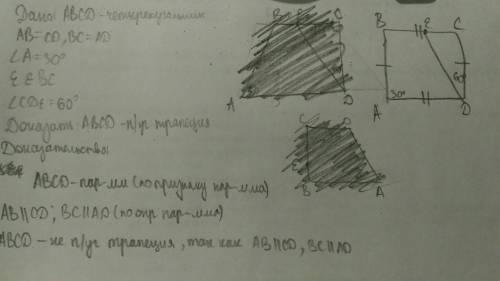 Дано: ABCD - четырехугольник
AB=CD, BC=AD
∠A=30°
E∈BC
∠CDE=60°
Доказать: ABCD - п/уг трапеция
Доказательство:
ABCD - пар-мм (по признаку пар-мма)
AB||CD; BC||AD (по опр пар-мма)
ABCD - не п/уг трапеция, так как AB||CD, BC||AD
B E C
A D
B E C
60°
30°
A D
C D
E
B A